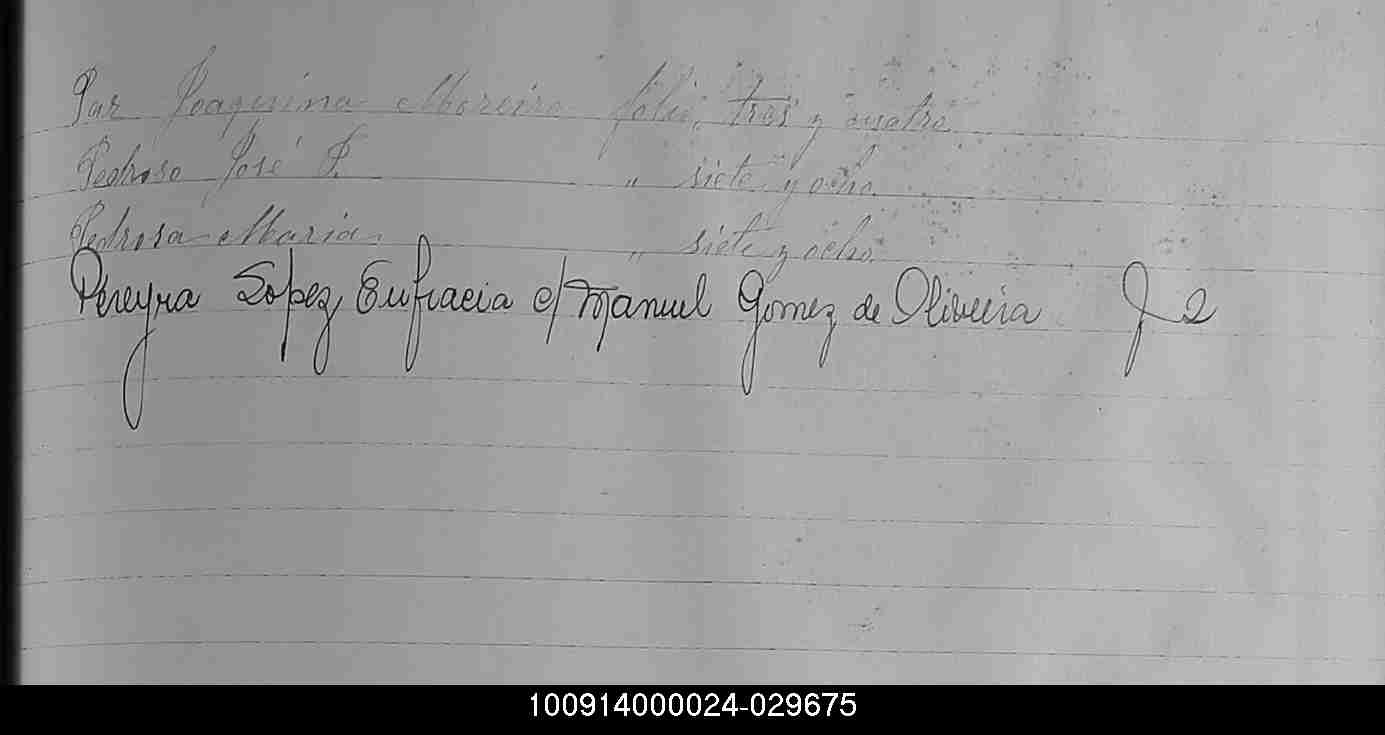 Paz Joaquina Moreira folio, tres y cuatro
Pedroso José P. " siete y ocho.
Pedrosa Maria. " siete y ocho.
Pereyra Lopez Eufracia c/ Manuel Gomez de Oliveira f 2
100914000024-029675